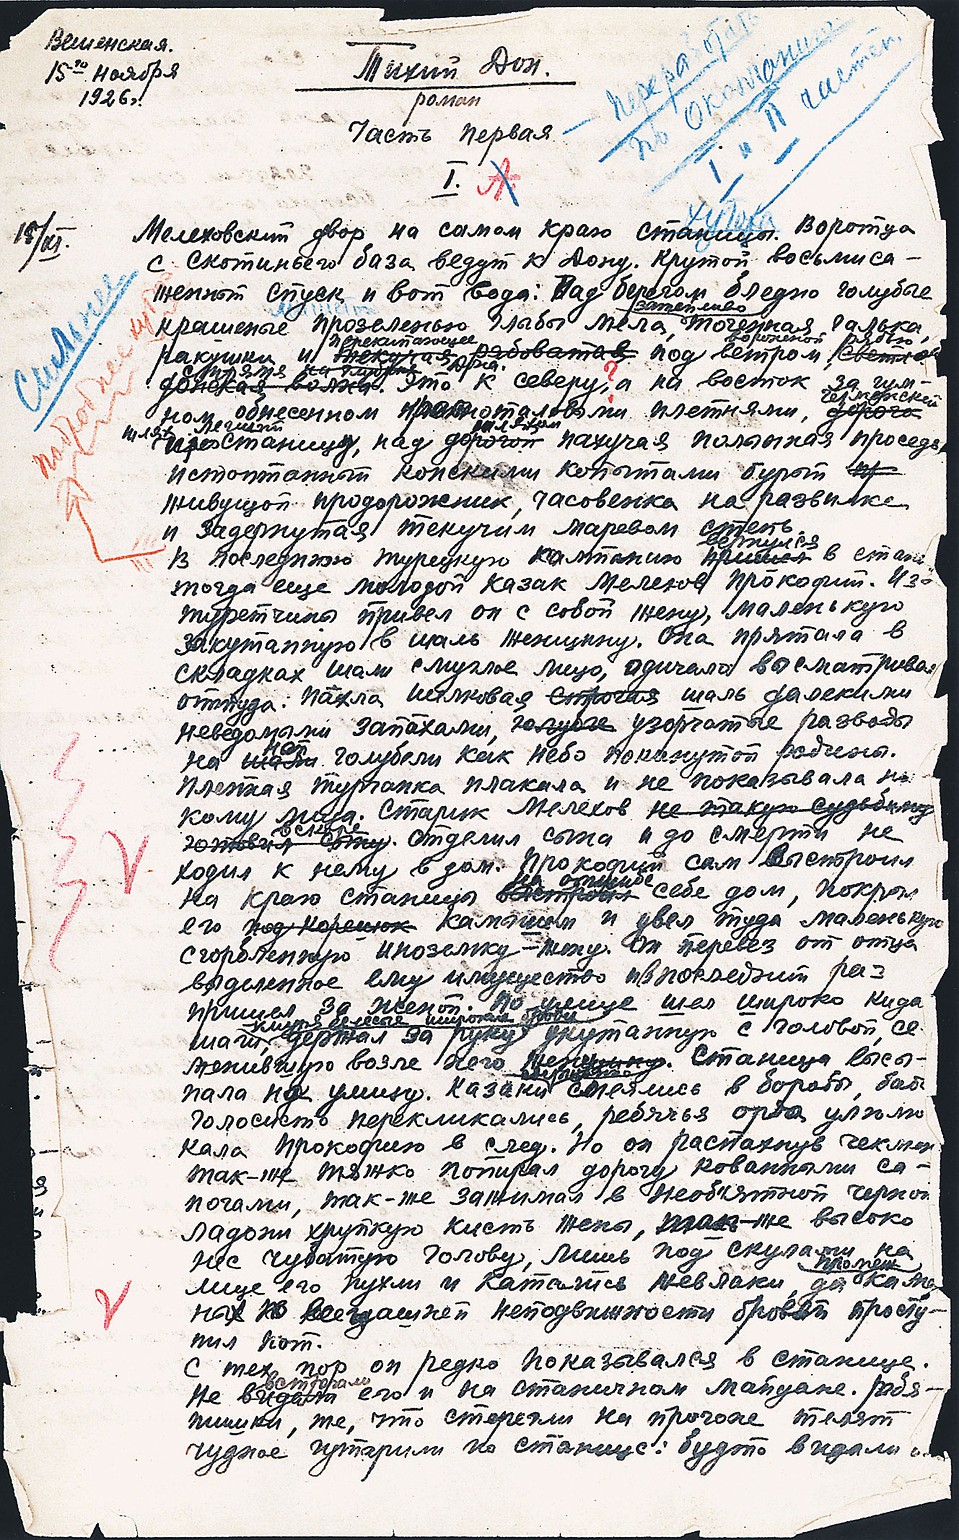 Вешенская.
15го ноября
1926г.
Тихий Дон.
роман
Часть первая
I.
— переработать
по окончании
I и II частей.
15/XI.
хутора
Мелеховский двор на самом краю станицы. Воротца
с скотиньего база ведут к Дону. Крутой восьмиса-
женный спуск и вот вода: Над берегом бледно голубые
затейливо
крашеные прозеленью глыбы мела, точенная галька,
перекипающее вороненой рябью,
ракушки и текучая рябоватая под ветром,
стремя Дона.
донская волна. Это к северу, а на восток за гум-
Гетманский
ном обнесенном красноталовыми плетнями, дорога
шлях
станицу, над дорогой пахучая полынная проседь
истоптанный конскими копытами бурый
живущой придорожник, часовенка на развилке
и задернутая текучим маревом степь.
вернулся
В последнюю турецкую кампанию пришел в стан
тогда еще молодой казак Мелехов Прокофий. Из-
туретчины привел он с собой жену, маленькую
закутанную в шаль женщину. Она прятала в
складках шали смуглое лицо, одичало высматривая
оттуда: Пахла шелковая строгая шаль далекими
неведомыми запахами, голубые узорчатые разводы
на шали голубели как небо покинутой родины.
Пленная турчанка плакала и не показывала ни-
кому лица. Старик Мелехов не такую судьбину
вскоре
готовил сыну. Отделил сына и до смерти не
ходил к нему в дом. Прокофий сам выстроил
на отшибе
на краю станицы выстроил себе дом, покрыл
его под корешок камышом и увел туда маленькую
сгорбленную иноземку-жену. Он перевез от отца
выделенное ему имущество и в последний раз
пришел за женой. По улице шел широко кида
хмуря белесые широкие брови
шаги, держал за руку укутанную с головой, се-
менившую возле него женщину. Станица высы-
пала на улицу. Казаки смеялись в бороды, баб
голосисто перекликались, ребячья орда улюлю
кала Прокофию в след. Но он распахнув чекмен
так-же тяжко попирал дорогу кованными са-
погами, так-же зажимал в необъятной черной
ладони хрупкую кисть жены, так-же высоко
нес чубатую голову, лишь под скулами на
лице его пухли и катались желваки, да
ных по всегдашней неподвижности бровей просту-
пил пот.
С тех пор он редко показывался в станице.
Не видали его и на станичном майдане. Ребя-
тишки, те, что стерегли на прогоне телят
чудное гутарили по станице: будто видали
Сильнее